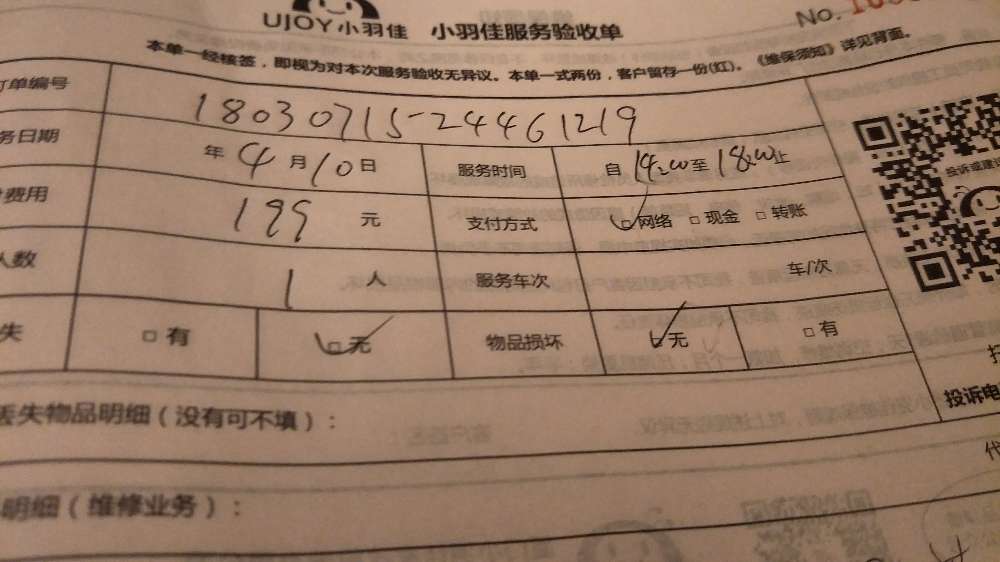 UJOY小羽佳 小羽佳服务验收单 No.
本单一经核签，即视为对本次服务验收无异议。本单一式两份，客户留存一份(红)。《维保须知》详见背面。
订单编号 18030715-24461219
务日期 年 4 月 10 日 服务时间 自 14:00 至 18:00 止
费用 199 元 支付方式 网络 现金 转账
人数 1 人 服务车次 车/次
失 有 无 物品损坏 无 有
投诉或建议
丢失物品明细（没有可不填）：
投诉电
明细（维修业务）：
代